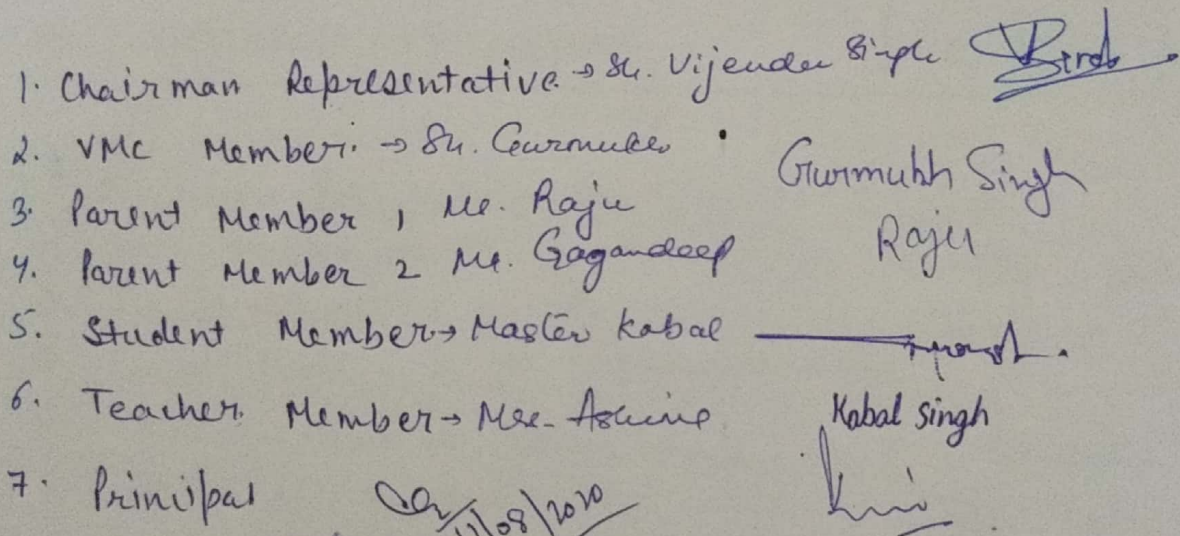 1. Chairman Representative → Sh. Vijender Singh
2. VMC Member. → Sh. Gurmukh
Gurmukh Singh
3. Parent Member 1 Mr. Raju
Raju
4. Parent Member 2 Mr. Gagandeep
5. Student Member → Master Kabal
6. Teacher Member → Mrs.
Kabal Singh
7. Principal
11/08/2020